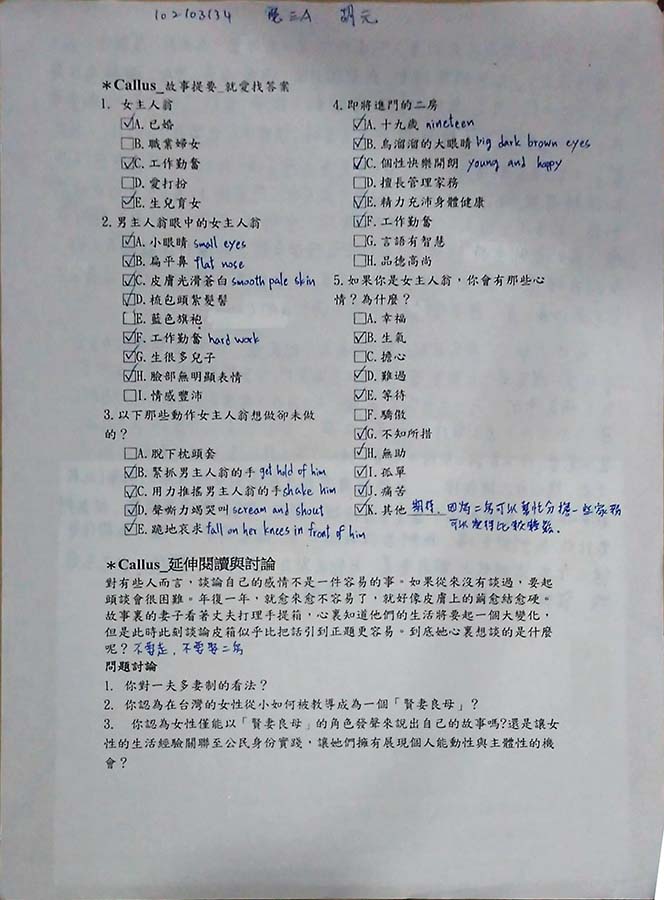 102103134 醫三A 胡元
＊Callus_故事提要_就愛找答案
1. 女主人翁
☑A. 已婚
☐B. 職業婦女
☑C. 工作勤奮
☐D. 愛打扮
☑E. 生兒育女
2. 男主人翁眼中的女主人翁
☑A. 小眼睛 small eyes
☑B. 扁平鼻 flat nose
☑C. 皮膚光滑蒼白 smooth pale skin
☑D. 梳包頭紮髮髻
☐E. 藍色旗袍
☑F. 工作勤奮 hard work
☑G. 生很多兒子
☑H. 臉部無明顯表情
☐I. 情感豐沛
3. 以下那些動作女主人翁想做卻未做
的？
☐A. 脫下枕頭套
☑B. 緊抓男主人翁的手 get hold of him
☑C. 用力推搖男主人翁的手 shake him
☑D. 聲嘶力竭哭叫 scream and shout
☑E. 跪地哀求 fall on her knees in front of him
4. 即將進門的二房
☑A. 十九歲 nineteen
☑B. 烏溜溜的大眼睛 big dark brown eyes
☑C. 個性快樂開朗 young and happy
☐D. 擅長管理家務
☑E. 精力充沛身體健康
☑F. 工作勤奮
☐G. 言語有智慧
☐H. 品德高尚
5. 如果你是女主人翁，你會有那些心
情？為什麼？
☐A. 幸福
☑B. 生氣
☐C. 擔心
☑D. 難過
☑E. 等待
☐F. 驕傲
☑G. 不知所措
☑H. 無助
☑I. 孤單
☑J. 痛苦
☑K. 其他 期待，因為二房可以幫忙分擔一些家務
可以變得比較輕鬆。
＊Callus_延伸閱讀與討論
對有些人而言，談論自己的感情不是一件容易的事。如果從來沒有談過，要起
頭談會很困難。年復一年，就愈來愈不容易了，就好像皮膚上的繭愈結愈硬。
故事裏的妻子看著丈夫打理手提箱，心裏知道他們的生活將要起一個大變化，
但是此時此刻談論皮箱似乎比把話引到正題更容易。到底她心裏想談的是什麼
呢？ 不要走，不要娶二房
問題討論
1. 你對一夫多妻制的看法？
2. 你認為在台灣的女性從小如何被教導成為一個「賢妻良母」？
3. 你認為女性僅能以「賢妻良母」的角色發聲來說出自己的故事嗎?還是讓女
性的生活經驗關聯至公民身份實踐，讓她們擁有展現個人能動性與主體性的機
會？